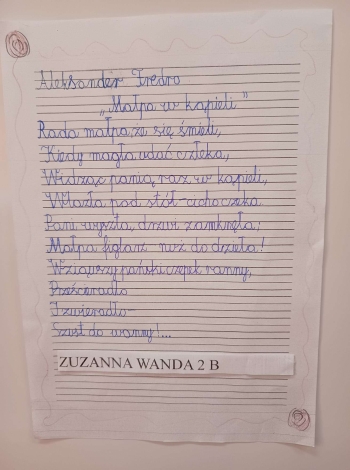 Aleksander Fredro
„Małpa w kąpieli"
Rada małpa, że się śmieli,
Kiedy mogła udać człeka,
Widząc panią raz w kąpieli,
Wlazła pod stół - cicho czeka.
Pani wyszła, drzwi zamknęła;
Małpa figlarz nuż do dzieła!
Wziąwszy pański czepek ranny,
Prześcieradło
I zwierciadło -
Szust do wanny!...
ZUZANNA WANDA 2 B